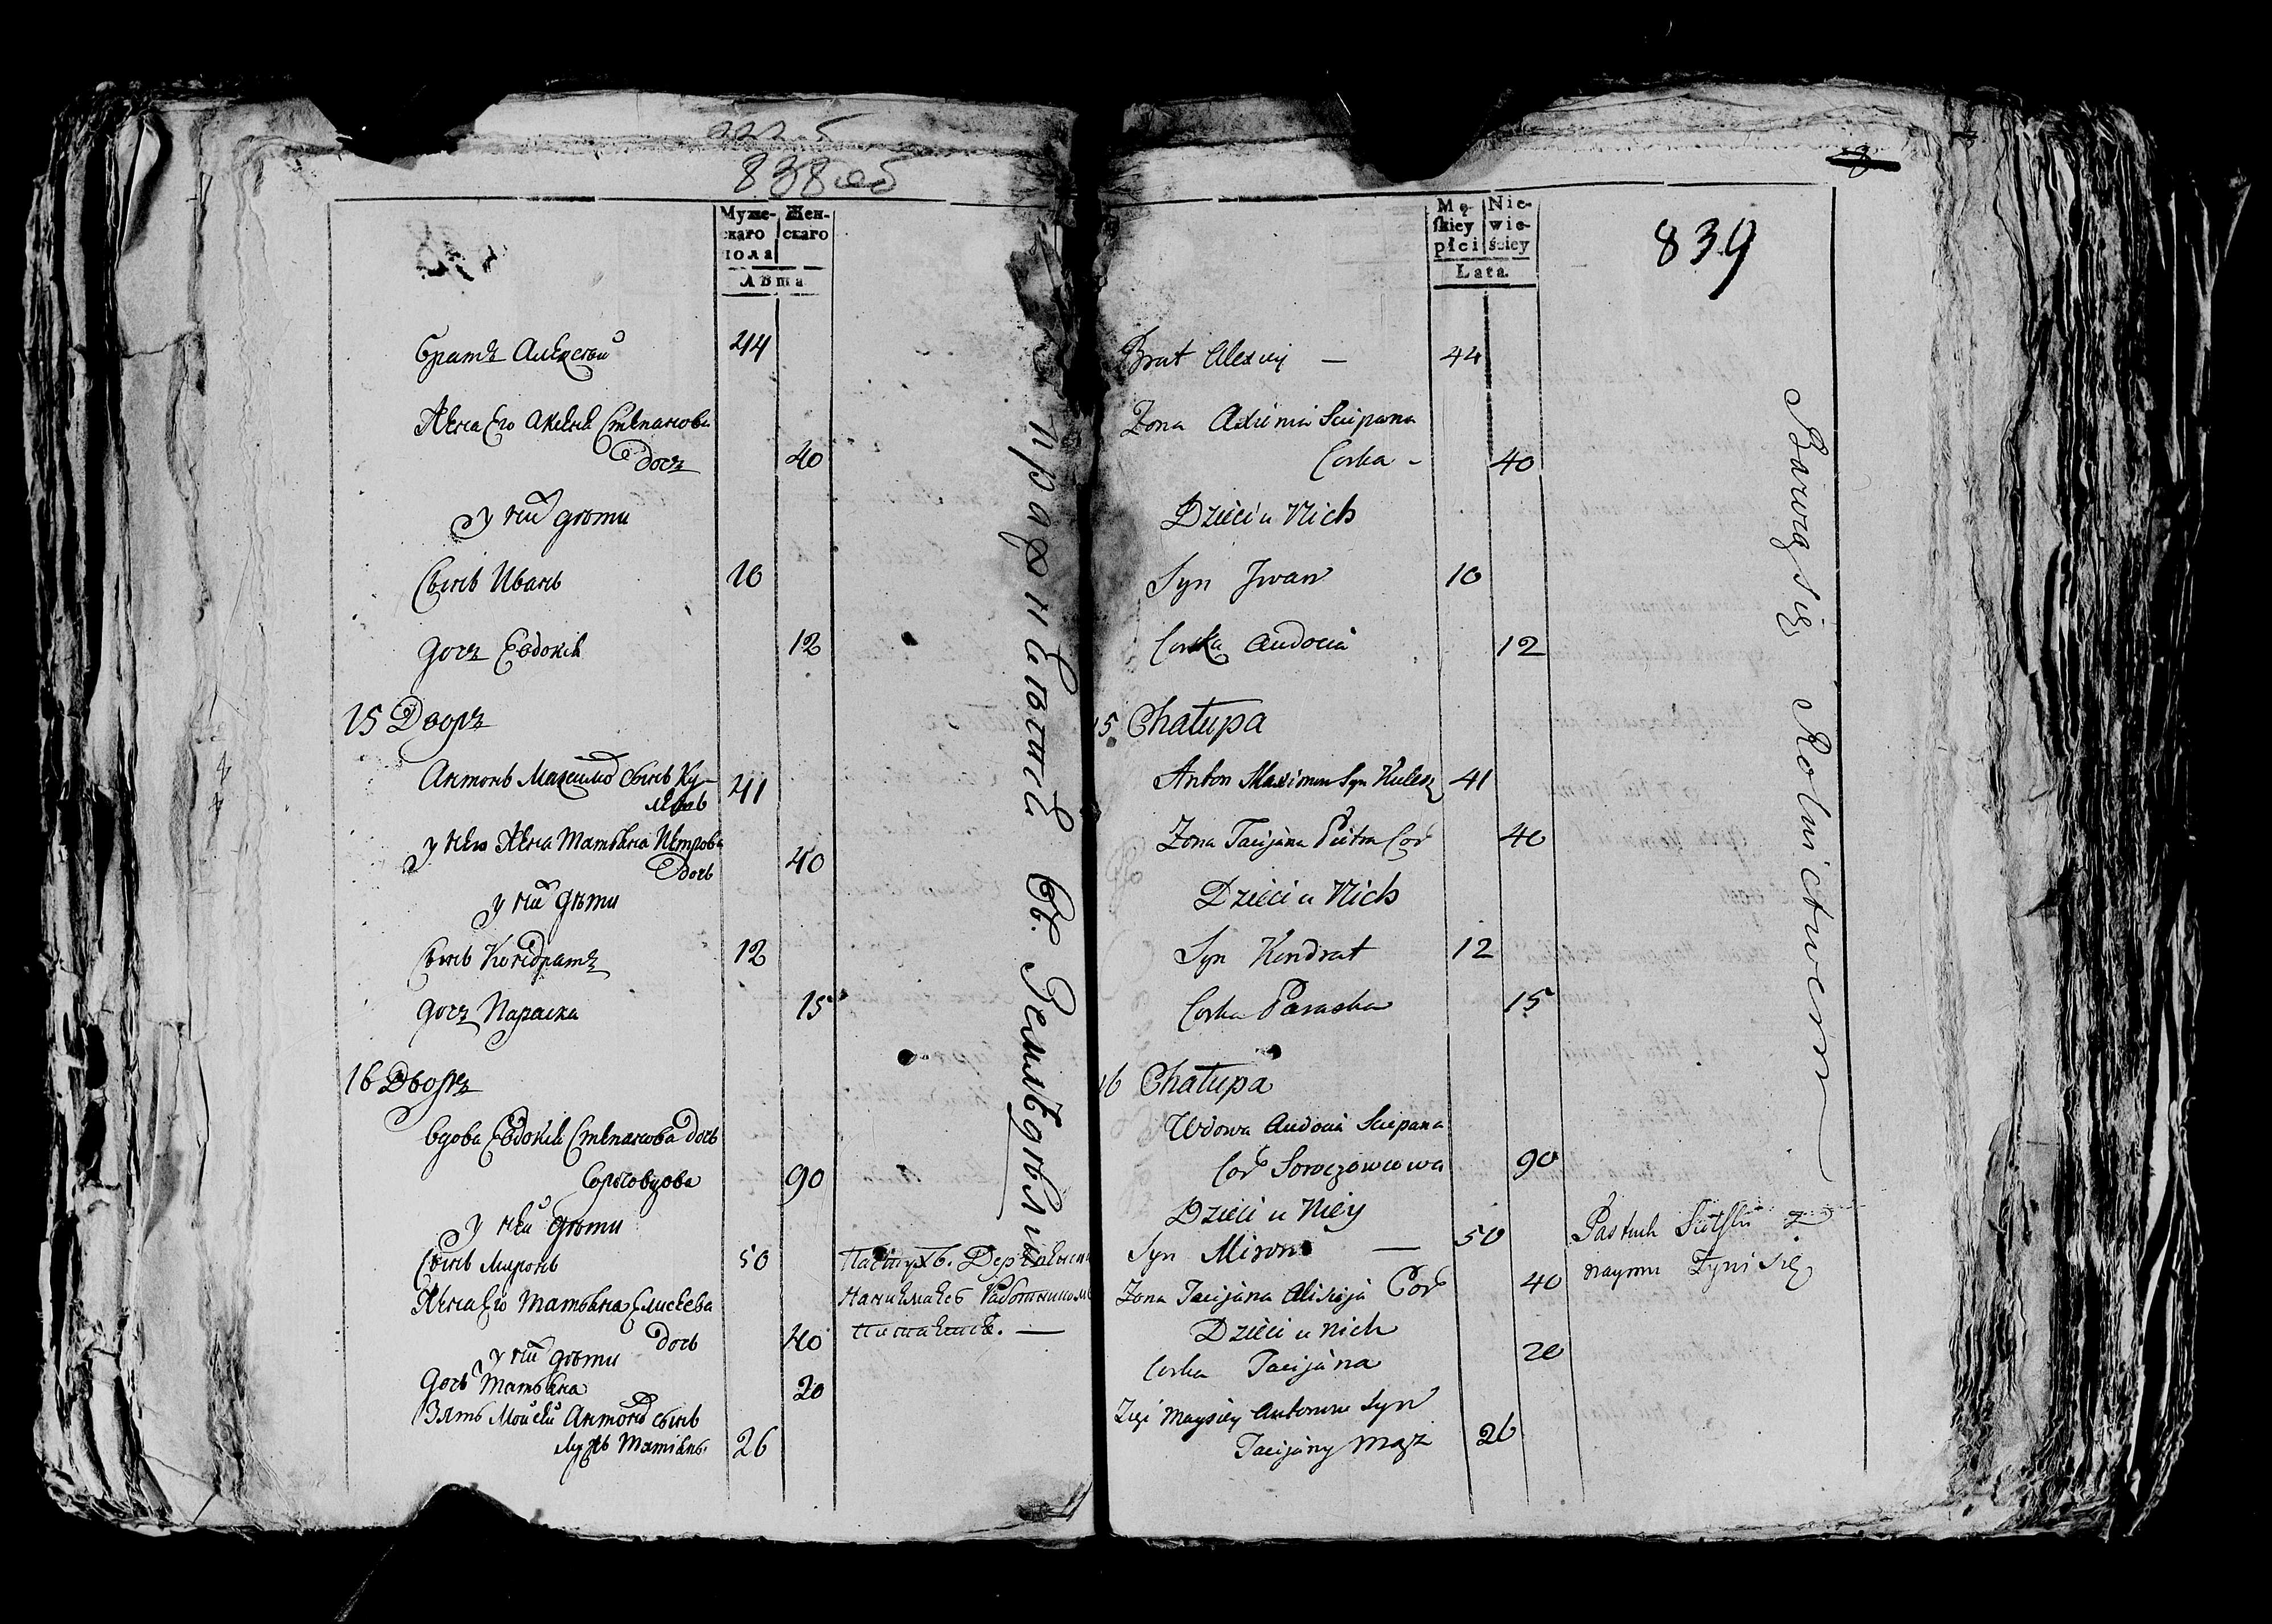 838 об
Муже-
скаго
пола
Жен-
скаго
Лѣта
братъ Алексѣй 44
Жена Его Аксенья Степанова
дочъ 40
у них дѣти
Сынъ Иванъ 10
дочъ Евдокія 12
15 Дворъ
Антонъ Максимов Сынъ Ку-
лешъ 41
у него Жена Татьяна Петрова
дочь 40
у них дѣти
Сынъ Кондратъ 12
дочъ Параска 15
16 Дворъ
вдова Евдокія Степанова дочь
90
у ней дѣти
Сынъ Миронъ 50
Жена Его Татьяна Елисеева
дочь 40
у них дѣти
дочь Татьяна 20
Зять Мойсей Антонов сынъ
мужъ Татіяны 26
Пастухъ.
Работникомъ
839
Mę-
skiey
płci
Nie-
wie-
ściey
Lata.
Brat Alexiej — 44
Zona Axinia Sciepana
Corka - 40
Dzieci u Nich
Syn Jwan 10
Corka Audocia 12
15 Chałupa
Anton Maximow Syn Kulesz 41
Zona Tacijana Pietra Cor 40
Dzieci u Nich
Syn Kondrat 12
Corka Paraska 15
16 Chałupa
Wdowa Audocia Sciepana
Cor Soroczowcowa 90
Dzieci u Niey
Syn Miron — 50
Zona Tacijana Alisieja Cor 40
Dzieci u nich
Corka Tacijana 20
Zięć Maysiey Antonow Syn
Tacijany mąż 26
Bawią się Rolnictwem
Pastuch